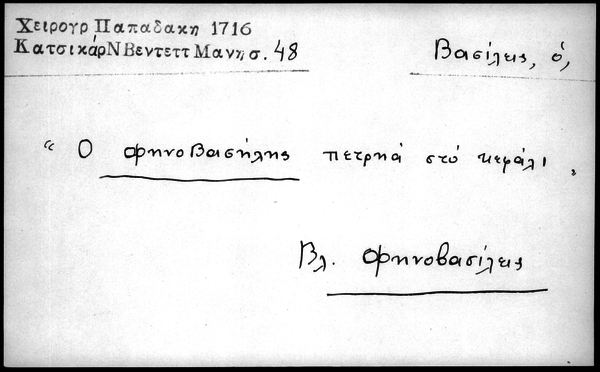 Χειρογρ Παπαδακη 1716
ΚατσικάρΝ Βεντεττ Μανη σ. 48
Βασίλης, ὁ,
“ Ο φηνοΒασήλης πετρηά στό κεφάλι,
Βλ. Φηνοβασίλης